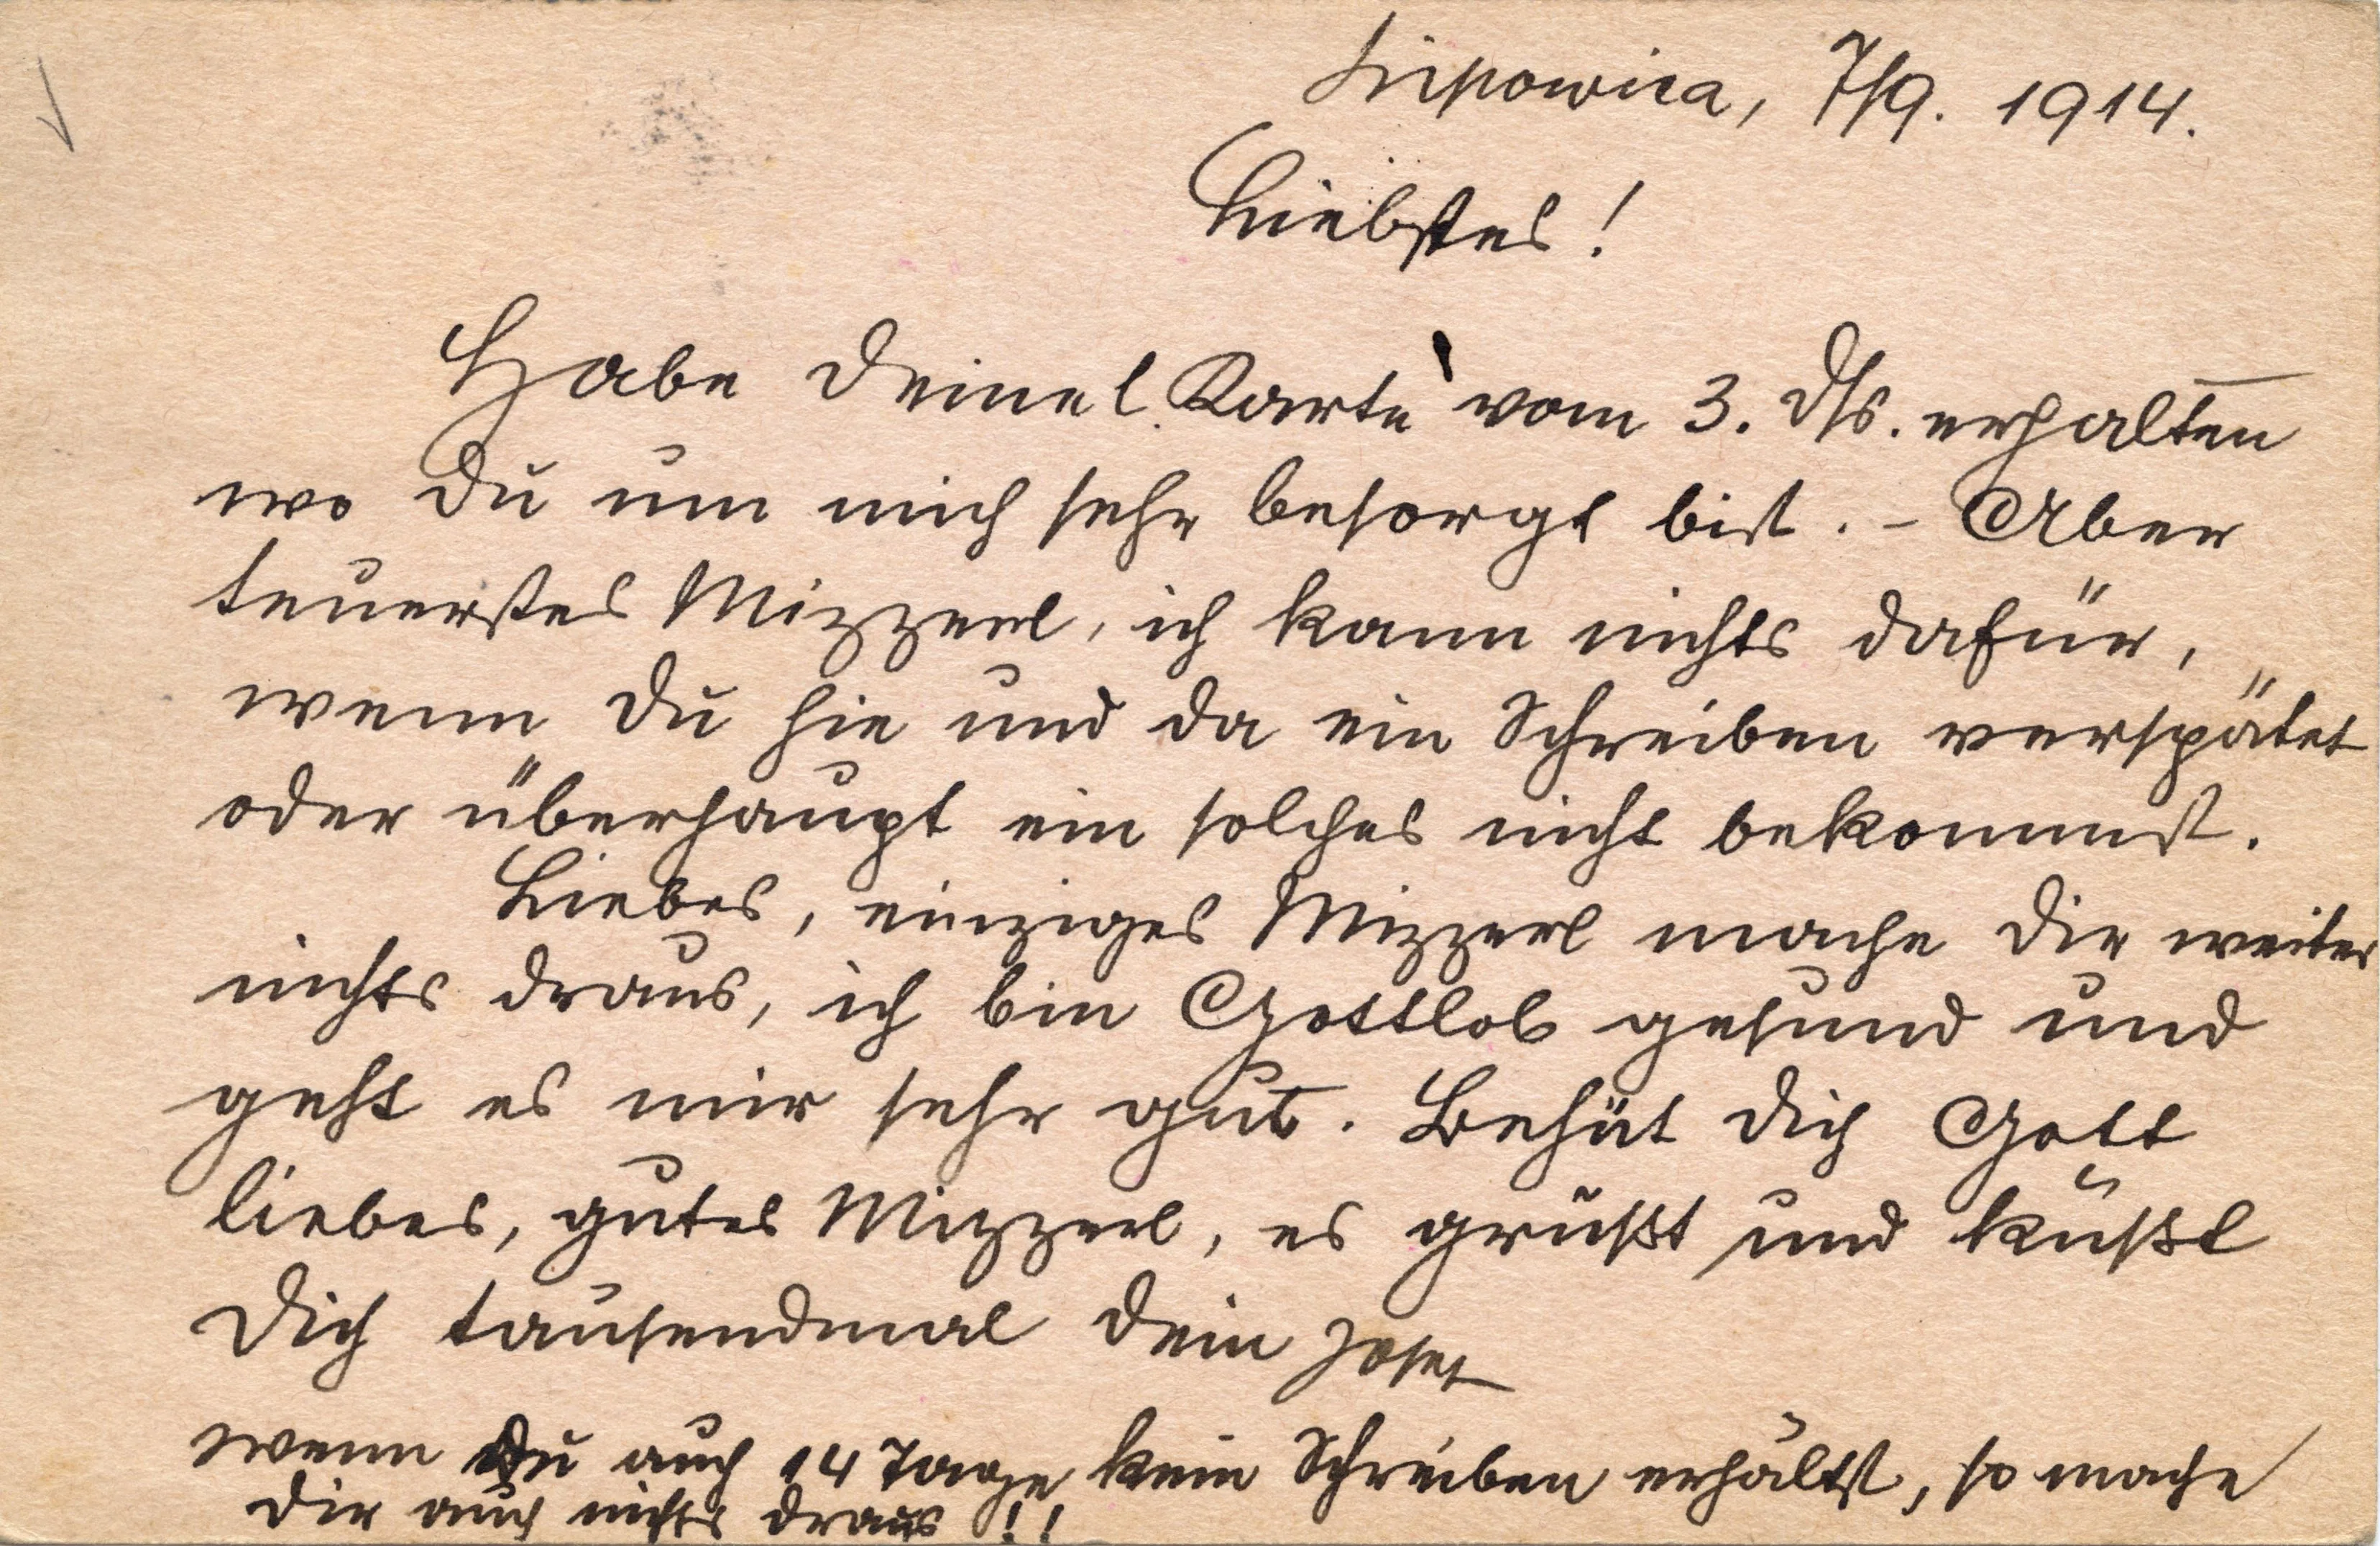 Lipowica, 7/9. 1914.
Liebstes!
Habe Deine l. Karte vom 3. d/s. erhalten
wo Du um mich sehr besorgt bist. - Aber
teuerstes Mizzerl, ich kann nichts dafür,
wenn Du hie und da ein Schreiben verspätet
oder überhaupt ein solches nicht bekommst.
Liebes, einziges Mizzerl mache Dir weiter
nichts draus, ich bin Gottlob gesund und
geht es mir sehr gut. Behüt Dich Gott
liebes, gutes Mizzerl, es grüßt und küßt
Dich tausendmal Dein Josef
wenn Du auch 14 Tage kein Schreiben erhältst, so mache
Dir auch nichts draus!!